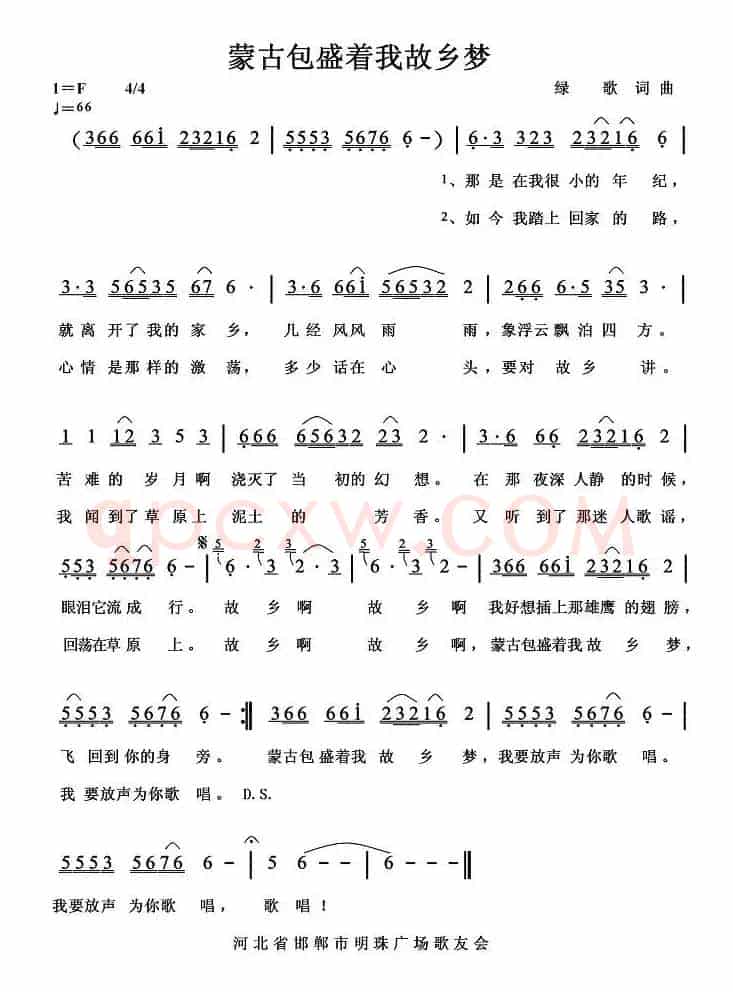 蒙古包盛着我故乡梦
1=F 4/4 绿 歌 词 曲
♩=66
(366 661 23216 2 | 5553 5676 6 -) | 6·3 323 23216 6 |
1、那 是 在我很 小的 年 纪，
2、如 今 我踏上 回家 的 路，
3·3 56535 67 6· | 3·6 661 56532 2 | 266 6·5 35 3· |
就离 开了我的 家 乡， 几经 风风 雨 雨，象浮云飘泊四 方。
心情 是那样的 激 荡， 多少 话在 心 头，要对 故乡 讲。
1 1 12 3 5 3 | 666 65632 23 2· | 3·6 661 23216 2 |
苦 难 的 岁 月 啊 浇灭了 当 初的幻 想。 在 那 夜深人静 的时候，
我 闻 到了草原上 泥土 的 芳 香。 又 听 到了那迷 人歌谣，
gpcxw.COM
5553 5676 6 - | 5 6·3 2 2·3 3 | 5 6·3 2 2·3 3 | 366 661 23216 2 |
眼泪它流成 行。 故 乡 啊 故 乡 啊 我好想插上那雄鹰 的翅 膀，
回荡在草原 上。 故 乡 啊 故 乡 啊，蒙古包盛着我 故 乡 梦，
5553 5676 6 - :| 366 661 23216 2 | 5553 5676 6 - |
飞 回到 你的身 旁。 蒙古包盛着我 故 乡 梦，我要放声 为你歌 唱。
我 要放声为你歌 唱。D.S.
5553 5676 6 - | 5 6 - - | 6 - - - ||
我要放声 为你歌 唱， 歌 唱！
河北省邯郸市明珠广场歌友会